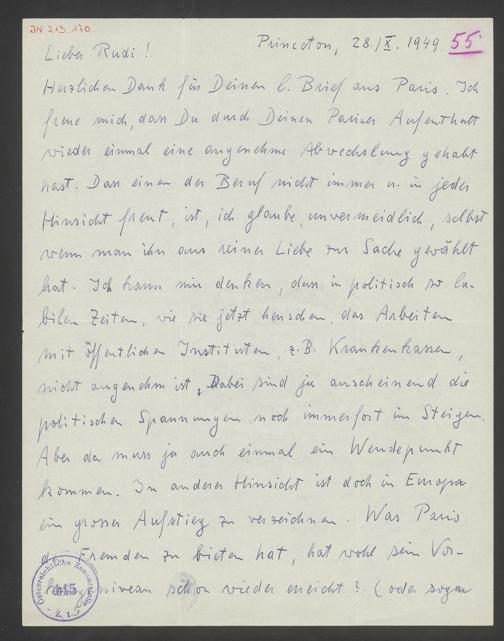 JN 213.170
Princeton, 28./X. 1949. 55
Lieber Rudi!
Herzlichen Dank für Deinen l. Brief aus Paris. Ich
freue mich, dass Du durch Deinen Pariser Aufenthalt
wieder einmal eine angenehme Abwechslung gehabt
hast. Dass einen der Beruf nicht immer u. in jeder
Hinsicht freut, ist, ich glaube, unvermeidlich, selbst
wenn man ihn aus reiner Liebe zur Sache gewählt
hat. Ich kann mir denken, dass in politisch so la-
bilen Zeiten, wie sie jetzt herrschen, das Arbeiten
mit öffentlichen Instituten, z.B. Krankenkassen,
nicht angenehm ist. Dabei sind ja anscheinend die
politischen Spannungen noch immerfort im Steigen.
Aber da muss ja auch einmal ein Wendepunkt
kommen. In anderer Hinsicht ist doch in Europa
ein grosser Aufstieg zu verzeichnen. Was Paris
den Fremden zu bieten hat, hat wohl sein Vor-
kriegsniveau schon wieder erreicht? (oder sogar
Österreichische Zensurstelle
445
Z. 1